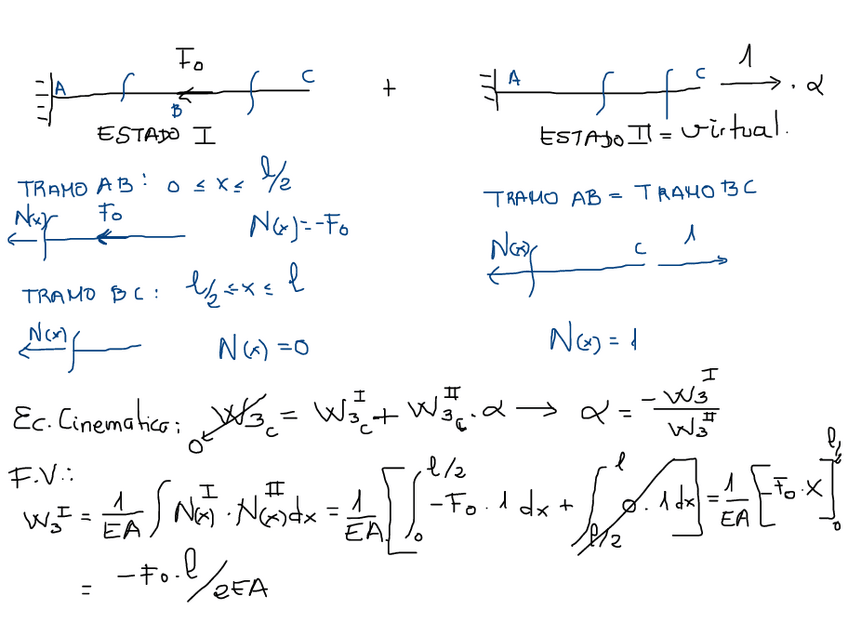 F₀
A B C + A C 1 . α
ESTADO I ESTADO II = virtual.
TRAMO AB: 0 ≤ x ≤ l/2 TRAMO AB = TRAMO BC
N(x) F₀ N(x)=-F₀
N(x) C 1
TRAMO BC: l/2 ≤ x ≤ l
N(x) N(x) = 0 N(x) = 1
Ec. Cinematica: W3c = W3c^I + W3c^II . α → α = -W3^I / W3^II
0
F.V.:
W3^I = 1/EA ∫ N(x)^I . N(x)^II dx = 1/EA [ ∫_0^{l/2} -F₀ . 1 dx + ∫_{l/2}^{l} 0 . 1 dx ] = 1/EA [ -F₀ . X ]_0^{l/2}
= -F₀ . l / 2EA